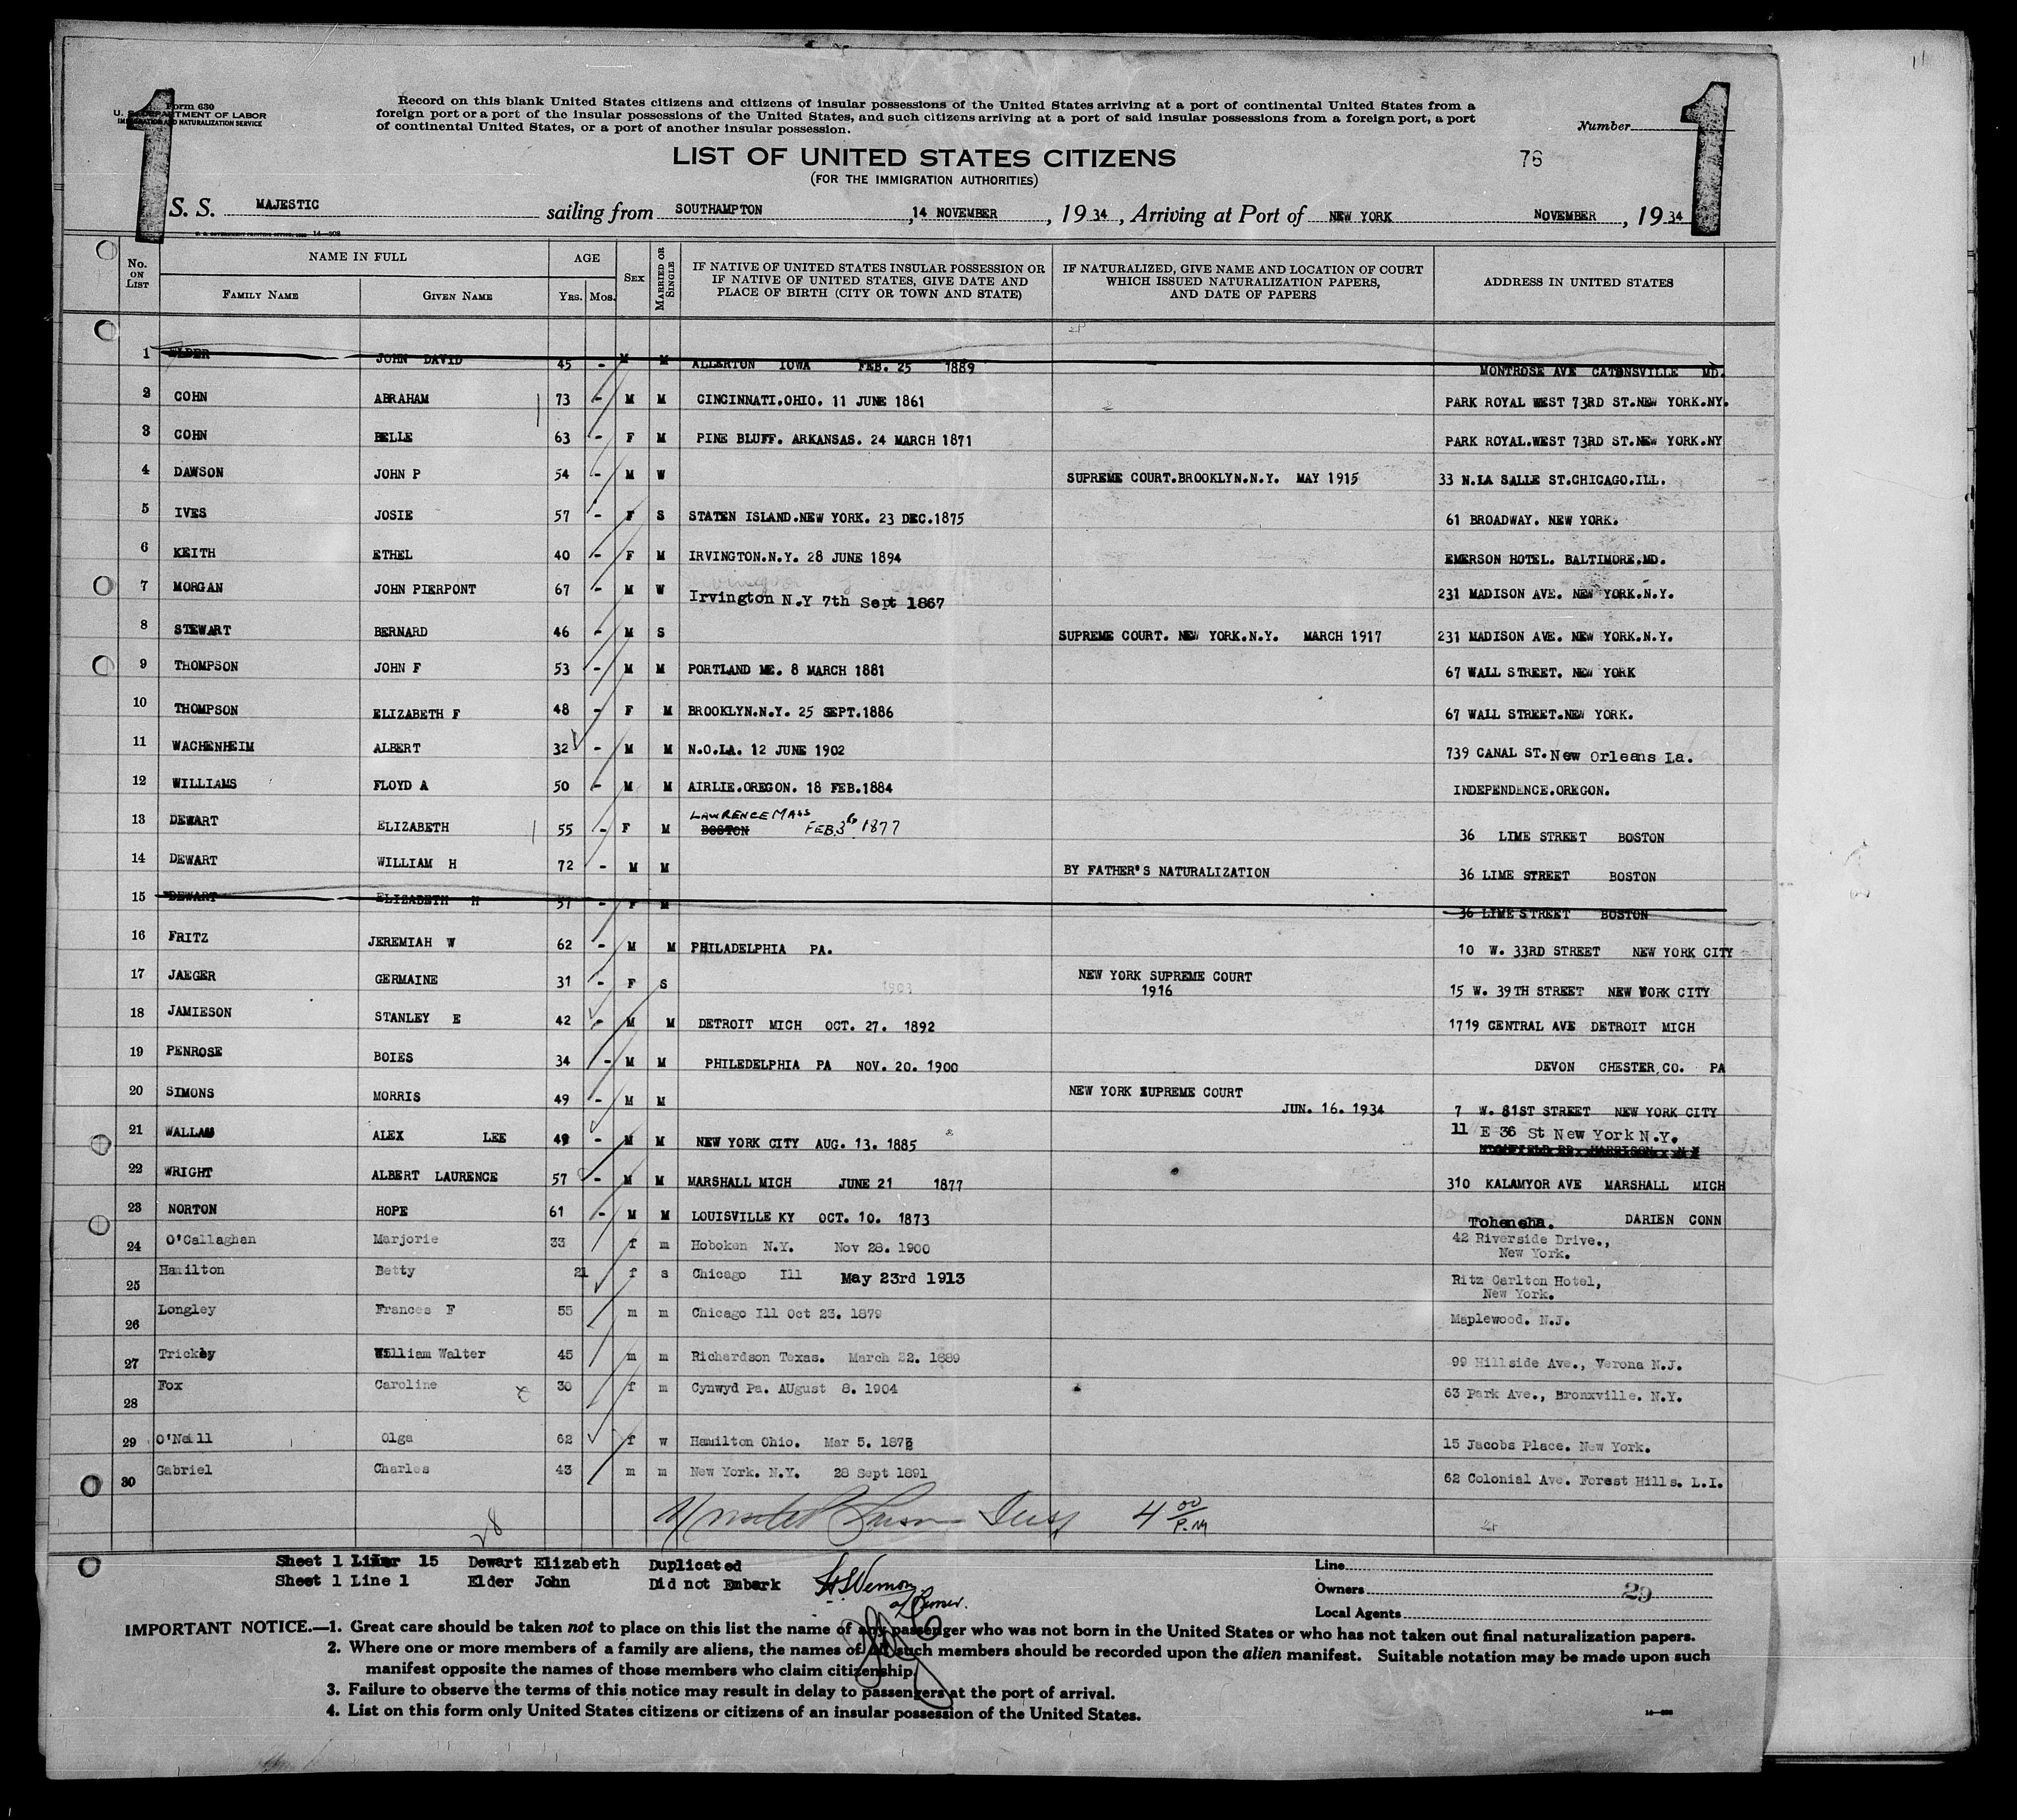 1 1
Form 630
U. S. DEPARTMENT OF LABOR
IMMIGRATION AND NATURALIZATION SERVICE
Record on this blank United States citizens and citizens of insular possessions of the United States arriving at a port of continental United States from a
foreign port or a port of the insular possessions of the United States, and such citizens arriving at a port of said insular possessions from a foreign port, a port
of continental United States, or a port of another insular possession.
Number
LIST OF UNITED STATES CITIZENS
76
(FOR THE IMMIGRATION AUTHORITIES)
S. S. MAJESTIC sailing from SOUTHAMPTON, 14 NOVEMBER, 1934, Arriving at Port of NEW YORK NOVEMBER, 1934
U. S. GOVERNMENT PRINTING OFFICE 14—208
No. ON LIST NAME IN FULL AGE SEX MARRIED OR SINGLE IF NATIVE OF UNITED STATES INSULAR POSSESSION OR IF NATIVE OF UNITED STATES, GIVE DATE AND PLACE OF BIRTH (CITY OR TOWN AND STATE) IF NATURALIZED, GIVE NAME AND LOCATION OF COURT WHICH ISSUED NATURALIZATION PAPERS, AND DATE OF PAPERS ADDRESS IN UNITED STATES
FAMILY NAME GIVEN NAME YRS. MOS.
1 ELDER JOHN DAVID 45 - M M ALLERTON IOWA FEB. 25 1889 MONTROSE AVE CATONSVILLE MD.
2 COHN ABRAHAM 73 - M M CINCINNATI.OHIO. 11 JUNE 1861 PARK ROYAL WEST 73RD ST.NEW YORK.NY.
3 COHN BELLE 63 - F M PINE BLUFF. ARKANSAS. 24 MARCH 1871 PARK ROYAL.WEST 73RD ST.NEW YORK.NY
4 DAWSON JOHN P 54 - M W SUPREME COURT.BROOKLYN.N.Y. MAY 1915 33 N.LA SALLE ST.CHICAGO.ILL.
5 IVES JOSIE 57 - F S STATEN ISLAND.NEW YORK. 23 DEC.1875 61 BROADWAY. NEW YORK.
6 KEITH ETHEL 40 - F M IRVINGTON.N.Y. 28 JUNE 1894 EMERSON HOTEL. BALTIMORE.MD.
7 MORGAN JOHN PIERPONT 67 - M W Irvington N.Y 7th Sept 1867 231 MADISON AVE. NEW YORK.N.Y.
8 STEWART BERNARD 46 - M S SUPREME COURT. NEW YORK.N.Y. MARCH 1917 231 MADISON AVE. NEW YORK.N.Y.
9 THOMPSON JOHN F 53 - M M PORTLAND ME. 8 MARCH 1881 67 WALL STREET. NEW YORK
10 THOMPSON ELIZABETH F 48 - F M BROOKLYN.N.Y. 25 SEPT.1886 67 WALL STREET.NEW YORK.
11 WACHENHEIM ALBERT 32 - M M N.O.LA. 12 JUNE 1902 739 CANAL ST. New Orleans La.
12 WILLIAMS FLOYD A 50 - M M AIRLIE.OREGON. 18 FEB.1884 INDEPENDENCE.OREGON.
13 DEWART ELIZABETH 55 - F M LAWRENCE MASS BOSTON FEB 3d 1877 36 LIME STREET BOSTON
14 DEWART WILLIAM H 72 - M M BY FATHER'S NATURALIZATION 36 LIME STREET BOSTON
15 DEWART ELIZABETH H 57 - F M 36 LIME STREET BOSTON
16 FRITZ JEREMIAH W 62 - M M PHILADELPHIA PA. 10 W. 33RD STREET NEW YORK CITY
17 JAEGER GERMAINE 31 - F S 1903 NEW YORK SUPREME COURT 1916 15 W. 39TH STREET NEW YORK CITY
18 JAMIESON STANLEY E 42 - M M DETROIT MICH OCT. 27. 1892 1719 CENTRAL AVE DETROIT MICH
19 PENROSE BOIES 34 - M M PHILEDELPHIA PA NOV. 20. 1900 DEVON CHESTER,CO. PA
20 SIMONS MORRIS 49 - M M NEW YORK SUPREME COURT JUN. 16. 1934 7 W. 81ST STREET NEW YORK CITY
21 WALLAM ALEX LEE 49 - M M NEW YORK CITY AUG. 13. 1885 11 E 36 St New York N.Y.
22 WRIGHT ALBERT LAURENCE 57 - M M MARSHALL MICH JUNE 21 1877 310 KALAMYOR AVE MARSHALL MICH
23 NORTON HOPE 61 - M M LOUISVILLE KY OCT. 10. 1873 Tokeneha. DARIEN CONN
24 O'Callaghan Marjorie 33 f m Hoboken N.Y. Nov 28. 1900 42 Riverside Drive., New York.
25 Hamilton Betty 21 f s Chicago Ill May 23rd 1913 Ritz Carlton Hotel, New York.
26 Longley Frances F 55 m m Chicago Ill Oct 23. 1879 Maplewood. N.J.
27 Trickey William Walter 45 m m Richardson Texas. March 22. 1889 99 Hillside Ave., Verona N.J.
28 Fox Caroline 30 f m Cynwyd Pa. AUgust 8. 1904 63 Park Ave., Bronxville. N.Y.
29 O'Neill Olga 62 f w Hamilton Ohio. Mar 5. 1872 15 Jacobs Place. New York.
30 Gabriel Charles 43 m m New York. N.Y. 28 Sept 1891 62 Colonial Ave. Forest Hills. L.I.
28 4 00 P.M
Sheet 1 Line 15 Dewart Elizabeth Duplicated
Sheet 1 Line 1 Elder John Did not Embark
Line
Owners 29
Local Agents
IMPORTANT NOTICE.—1. Great care should be taken not to place on this list the name of any passenger who was not born in the United States or who has not taken out final naturalization papers.
2. Where one or more members of a family are aliens, the names of all such members should be recorded upon the alien manifest. Suitable notation may be made upon such
manifest opposite the names of those members who claim citizenship.
3. Failure to observe the terms of this notice may result in delay to passengers at the port of arrival.
4. List on this form only United States citizens or citizens of an insular possession of the United States.